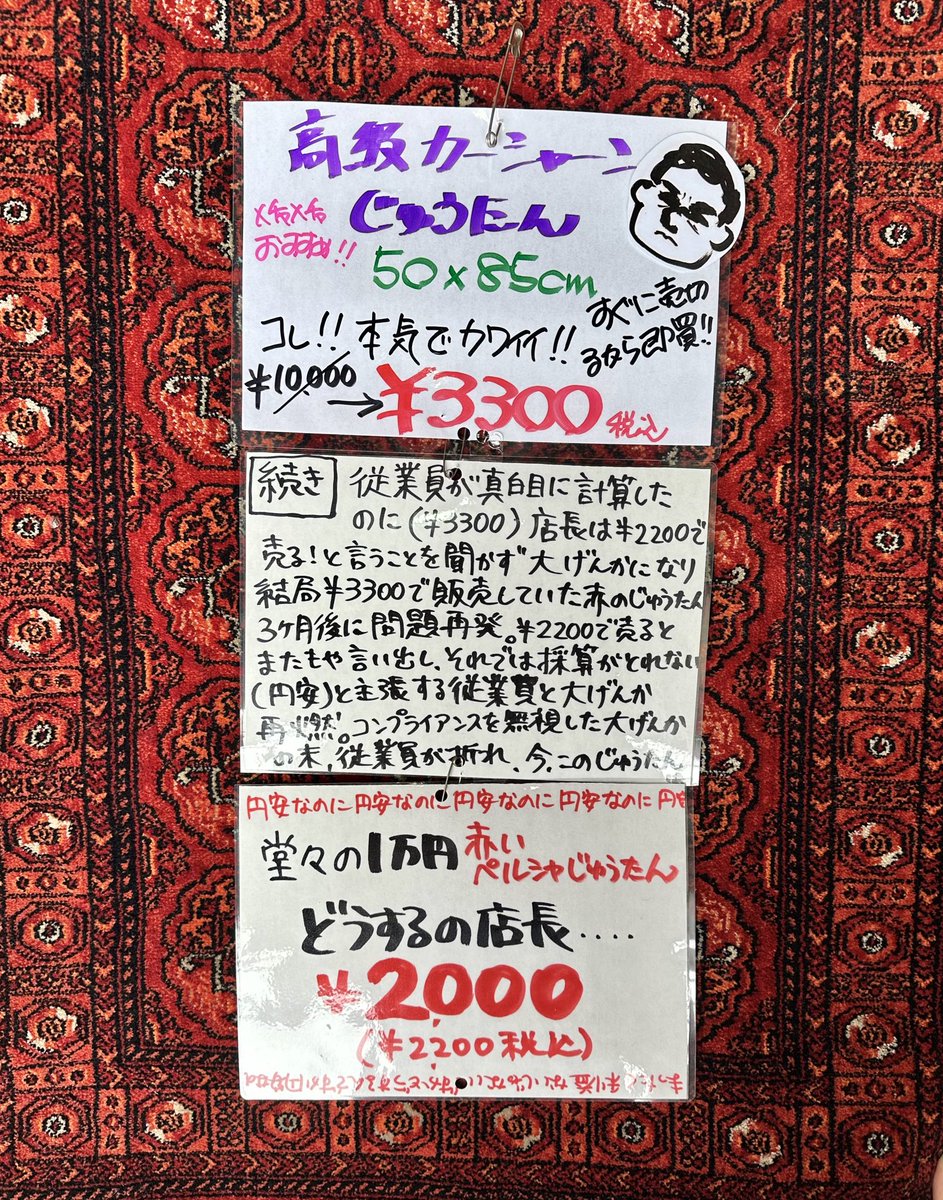 高級カーシャーン
じゅうたん
メチャメチャ
おすすめ!!
50×85cm
コレ!!本気でカワイイ!!
すぐに売切
るなら即買!!
¥10,000
→¥3300税込
続き
従業員が真白目に計算した
のに(¥3300)店長は¥2200で
売る!と言うことを聞かず大げんかになり
結局¥3300で販売していた赤のじゅうたん
3ヶ月後に問題再発。¥2200で売ると
またもや言い出し、それでは採算がとれない
(円安)と主張する従業員と大げんか
再燃。コンプライアンスを無視した大げんか
の末、従業員が折れ、今、このじゅうたん
円安なのに円安なのに円安なのに円安なのに円安
堂々の1万円赤い
ペルシャじゅうたん
どうするの店長....
¥2,000
(¥2,200税込)